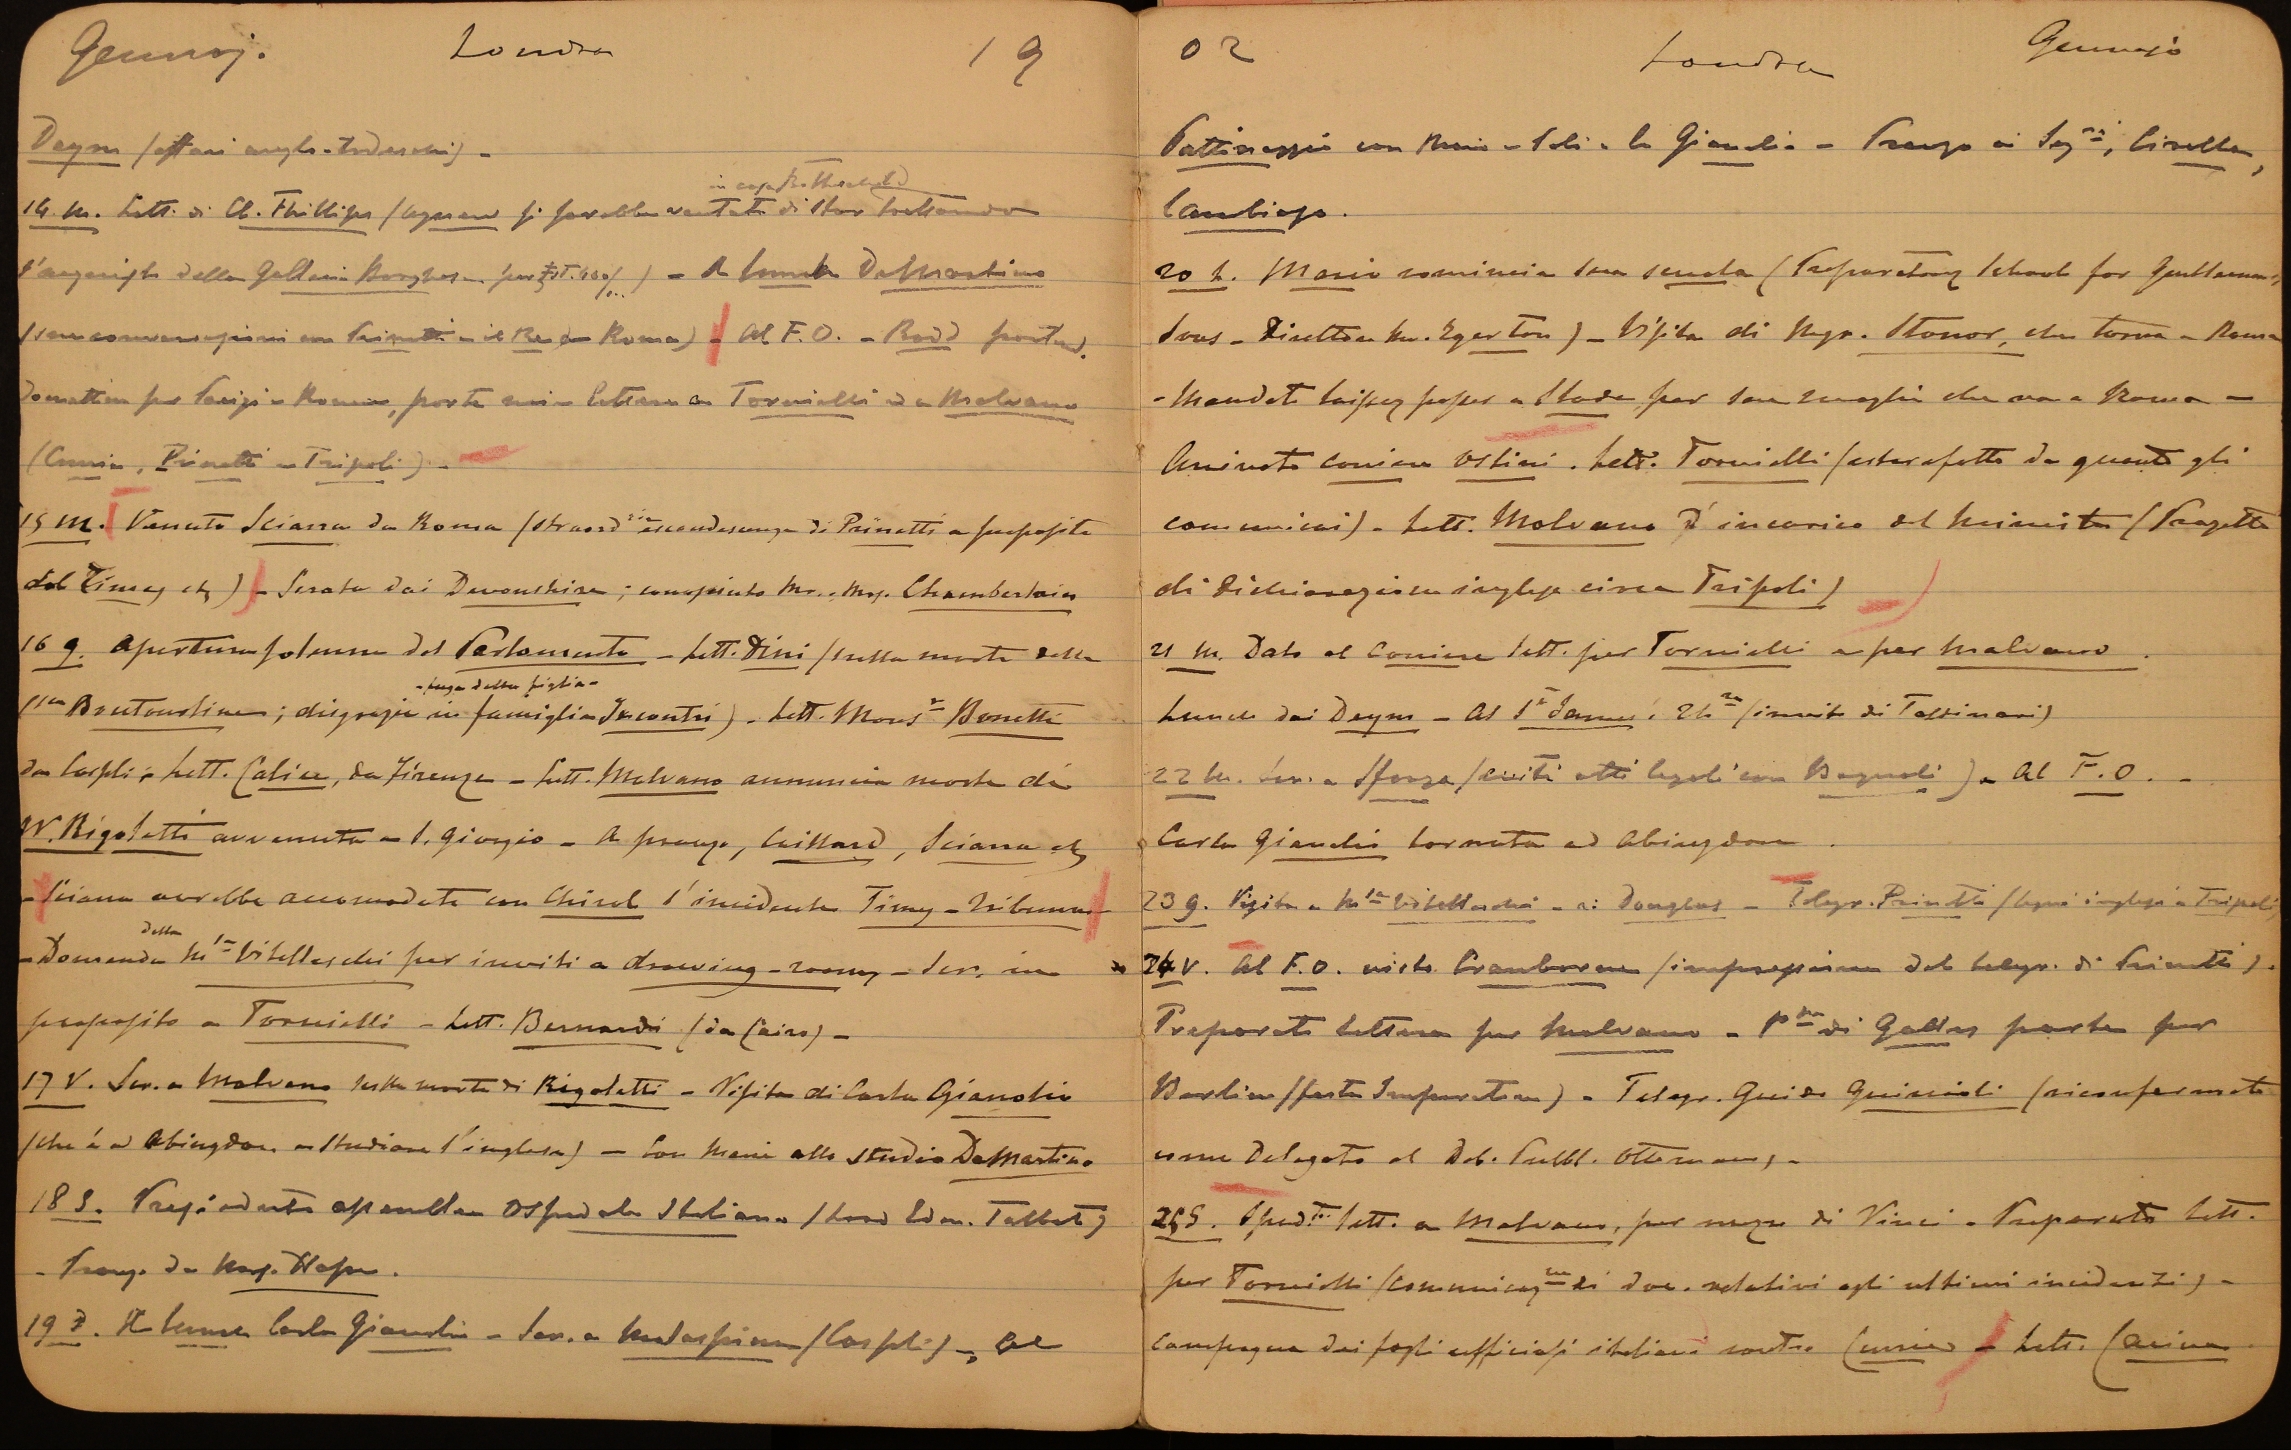 Gennaj. Londra 19
Deym (affari anglo-tedeschi) -
in casa Rothschild
14. m. Lett. di Cl. Phillips (Agnew si sarebbe vantato di star trattando
l'acquisto della Galleria Borghese per £st. ) - A lunch DeMartino
(sue conversazioni con Prinetti e il Re a Roma) - Al F.O. - Rodd partendo
domattina per Parigi e Roma, porta mia lettera a Tornielli ed a Malvano
(Currie, Prinetti e Tripoli) -
15 m. Venuto Sciarra da Roma (straord.rie escandescenze di Prinetti a proposito
del Times etc) - Serata dai Devonshire; conosciuto Mr. e Mrs. Chamberlain
16 g. Apertura solenne del Parlamento - Lett. Dini (sulla morte della
- fuga della figlia -
S.ra Brutourline; disgrazie in famiglia Incontri) - Lett. Mons.r Bonetti
da Cospli; Lett. Calice, da Firenze - Lett. Malvano annuncia morte di
N. Rigoletti avvenuta a S. Giorgio - A pranzo, Caillard, Sciarra etc
- Sciarra avrebbe accomodato con Chirol l'incidente Times - Tribuna
della
- Domanda M.sa Vitelleschi per inviti a drawing-rooms - Scr. in
proposito a Tornielli - Lett. Bernardi (da Cairo) -
17 V. Scr. a Malvano sulla morte di Rigoletti - Visita di Carlo Gianolio
(che è ad Abingdon a studiare l'inglese) - Con Mario allo studio DeMartino
18 S. Presieduta assemblea Ospedale Italiano (Lord Edm. Talbot)
- Pranzo da Mrs. Hope.
19 D. A lunch Carlo Gianolio - Scr. a Malaspina (Cospli) -, al
02 Londra Gennajo
Pattinaggio con Mario - Poli e la Gianolio - Pranzo ai Seg.ri, Civelli,
Cambiaso.
20 L. Mario comincia sua scuola (Preparatory School for Gentlemen's
Sons - Direttore Mr. Egerton) - Visita di Mgr. Stonor, che torna a Roma
- Mandato laissez passer a Slade per sua moglie che va a Roma -
Arrivato corriere Ostini. Lett. Tornielli (esterefatto da quanto gli
comunicai) - Lett. Malvano d'incarico del Ministro (Progetto
di dichiarazione inglese circa Tripoli)
21 M. Dato al Corriere lett. per Tornielli e per Malvano.
Lunch dai Deym - Al St James' (invito di Tattinari)
22 M. Scr. a Sforza (aviti atti legali con Bagnoli) - Al F.O. -
Carlo Gianolio tornato ad Abingdon.
23 g. Visita a M.sa Vitelleschi - ai Douglas - Telegr. Prinetti (legni inglesi a Tripoli)
24 V. Al F.O. visto Cranborne (impressione del telegr. di Prinetti).
Preparate lettera per Malvano - di Galles parte per
Berlino (festa Imperatore) - Telegr. Guido Guiccioli (riconfermato
come Delegato al Deb. Pubbl. Ottomano) -
25 S. Sped.to lett. a Malvano, per mezzo di Vinci - Preparata lett.
per Tornielli (comunicaz.ne di doc. relativi agli ultimi incidenti) -
Campagna dei fogli ufficiosi italiani contro Currie - Lett.